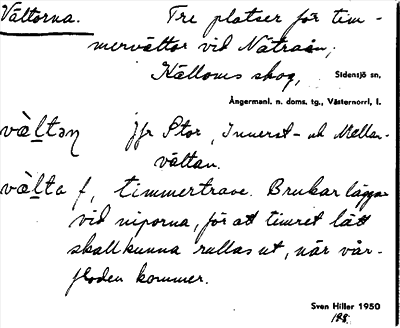 Vältorna. Tre platser för tim-
mervältor vid Nätraån,
Källoms skog, Sidensjö sn,
Ångermanl. n. doms. tg., Västernorrl. l.
vä̀ltən jfr Stor, Innerst- och Mellan-
vältan.
vä̀lta f, timmertrave. Brukar läggas
vid niporna, för att timret lätt
skall kunna rullas ut, när vår-
floden kommer.
Sven Hiller 1950
198.